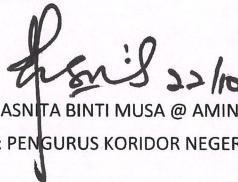 22/10
ASNITA BINTI MUSA @ AMIN
: PENGURUS KORIDOR NEGER